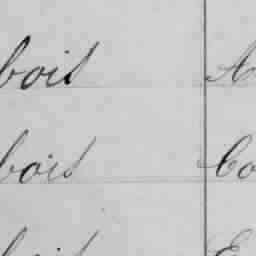 bois A
bois Co
bois E